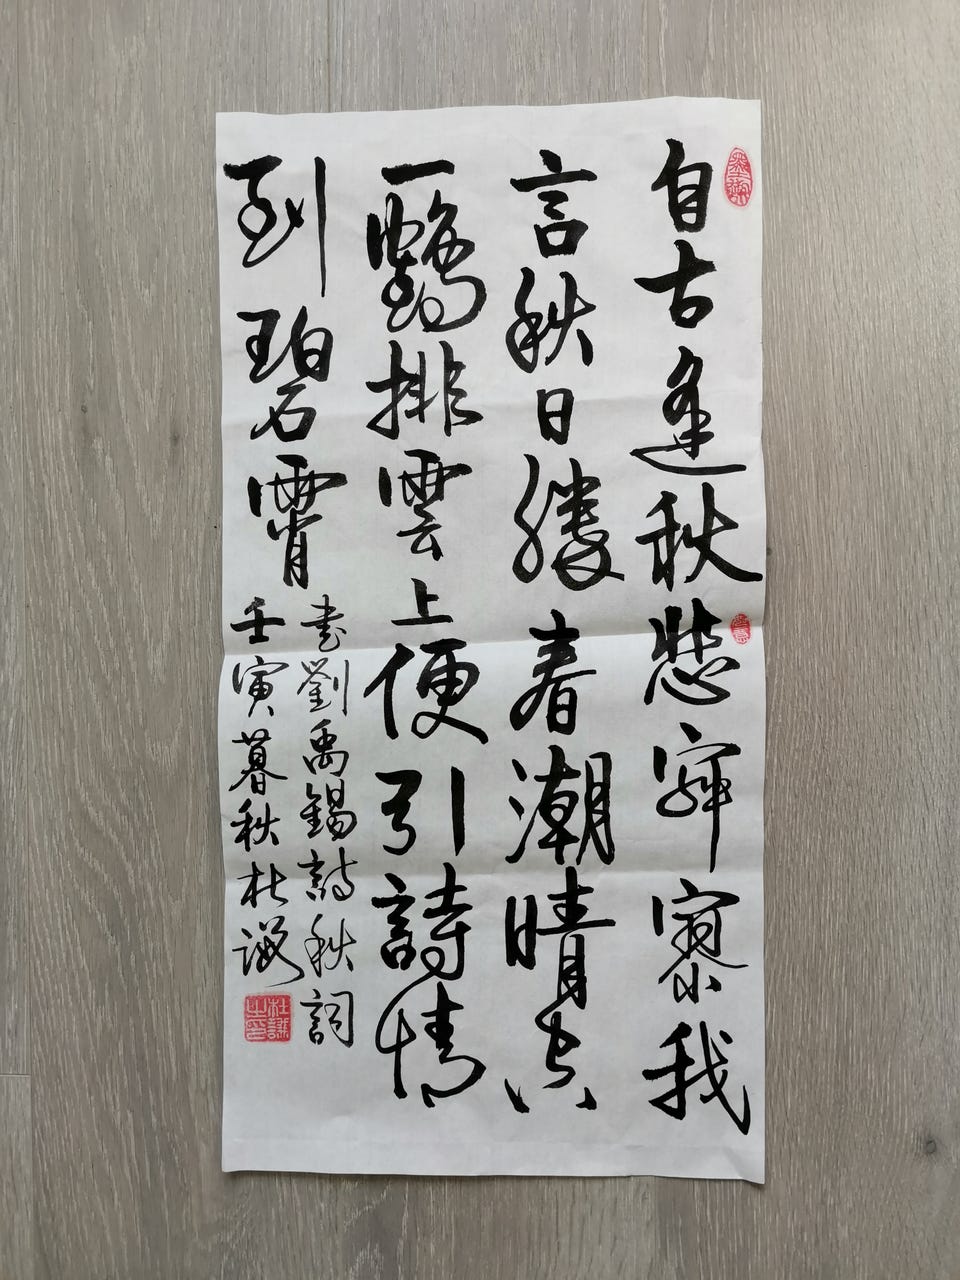 自古逢秋悲寂寥我
言秋日勝春潮晴空
一鶴排雲上便引詩情
到碧霄
書劉禹錫詩秋詞
壬寅暮秋杜謙
杜謙之印